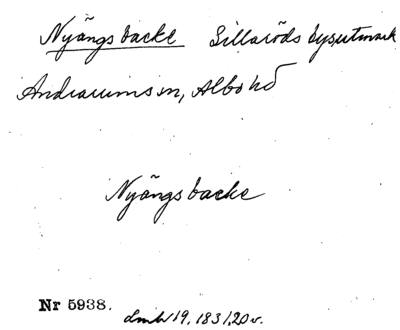 Nyängsbacke Lillaröds bysutmark
Andrarums sn, Albo hd
Nyängsbacke
Nr 5938.
Lmh 19, 1831,20 v.